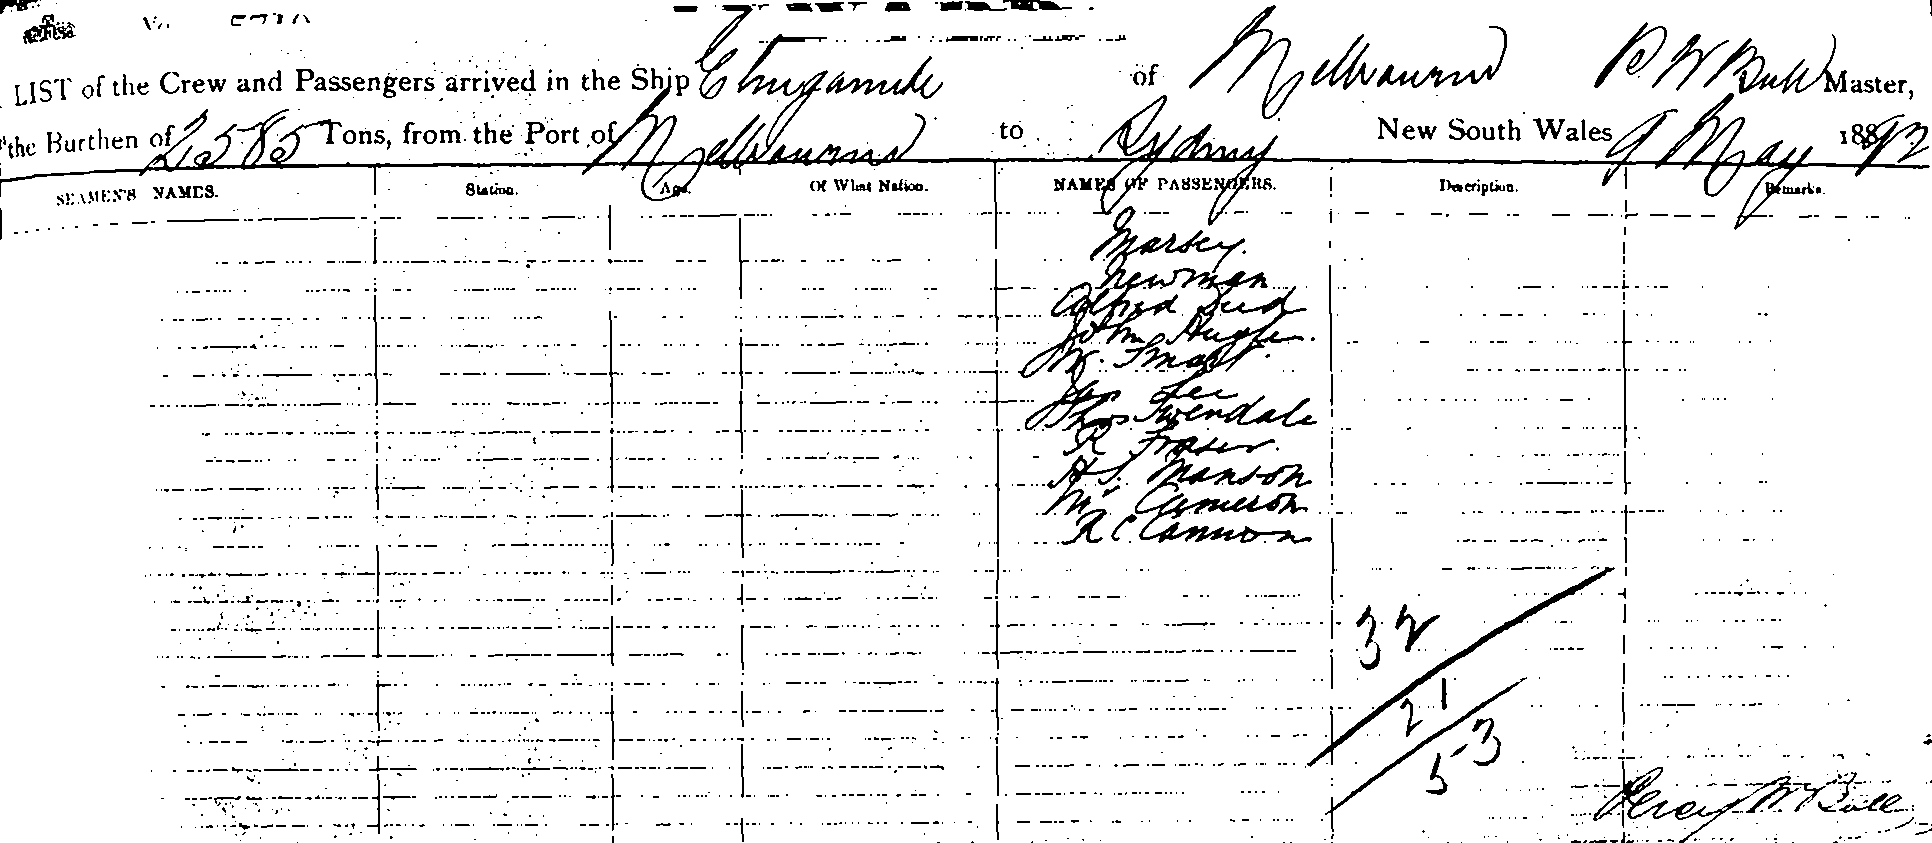 LIST of the Crew and Passengers arrived in the Ship Elingamite of Melbourne P W Bull Master,
the Burthen of 2585 Tons, from the Port of Melbourne to Sydney New South Wales 9 May 1892
SEAMEN'S NAMES. Station. Age. Of What Nation. NAMES OF PASSENGERS. Description. Remarks.
Marsey.
Newman
Alfred
John Hughes.
W. Smart.
Jas Lee
Thos Twendale
R Fraser.
H S. Manson
Mr Cameron
R C Cannon
32
21
53
Percy W Bull